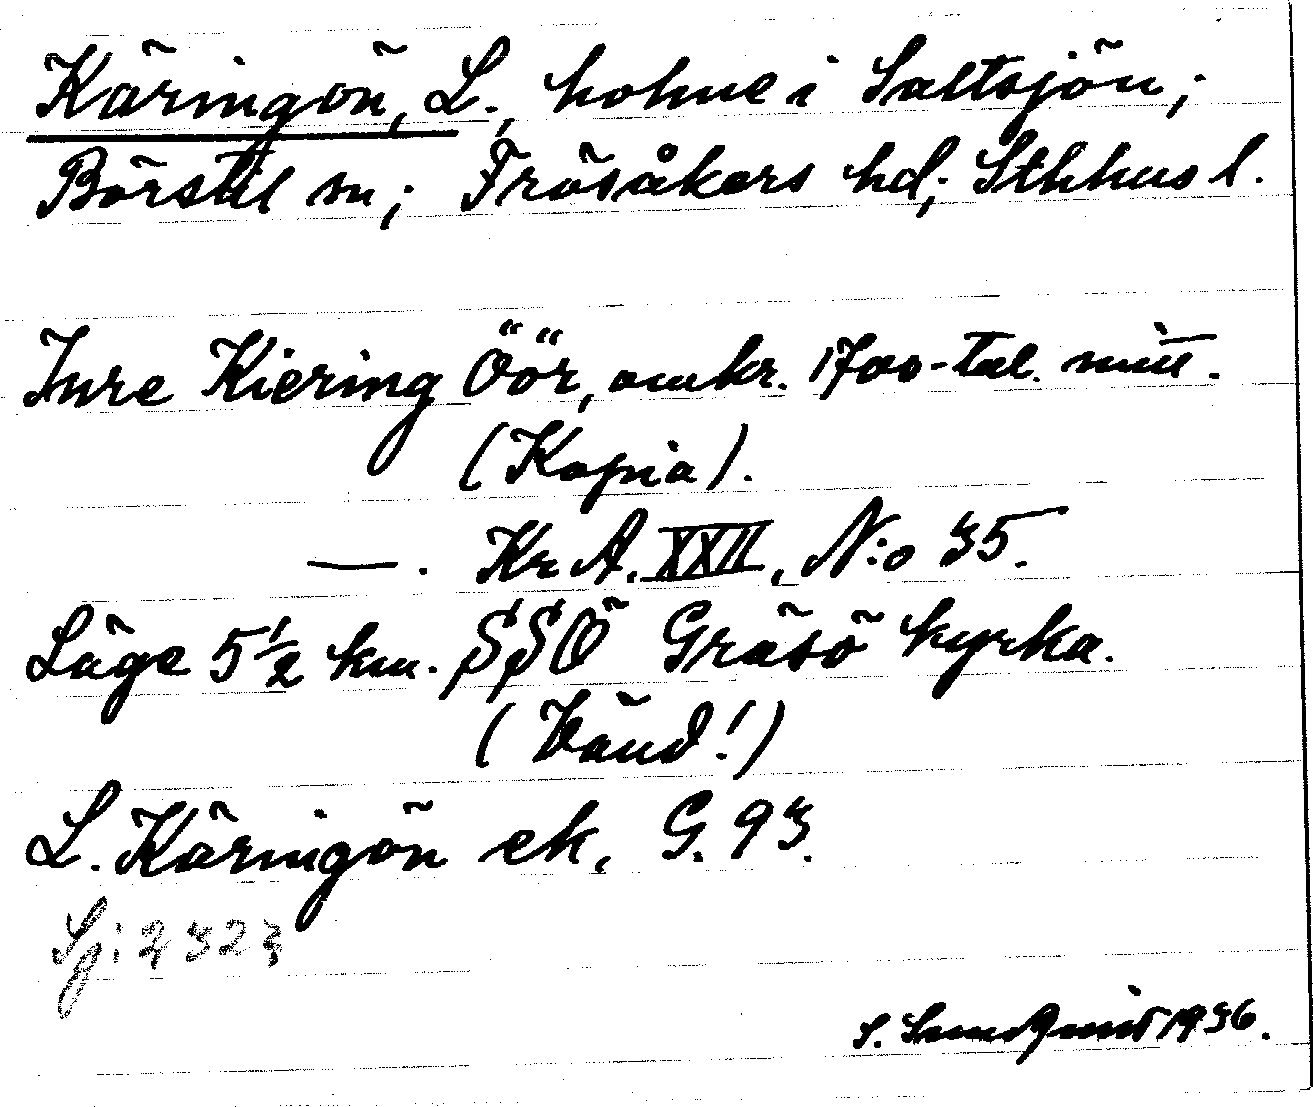 Käringön, L., holme i Saltsjön;
Börstil sn; Frösåkers hd; Sthhus l.
Inre Kiering Öör, omkr. 1700-tal. mitt.
(Kopia).
—. Kr A. XXII, N:o 35.
Läge 5 1/2 km. SSÖ Gräsö kyrka.
(Vänd!)
L. Käringön ek. G. 93.
Sj: 2323
S. Sundquist 1936.